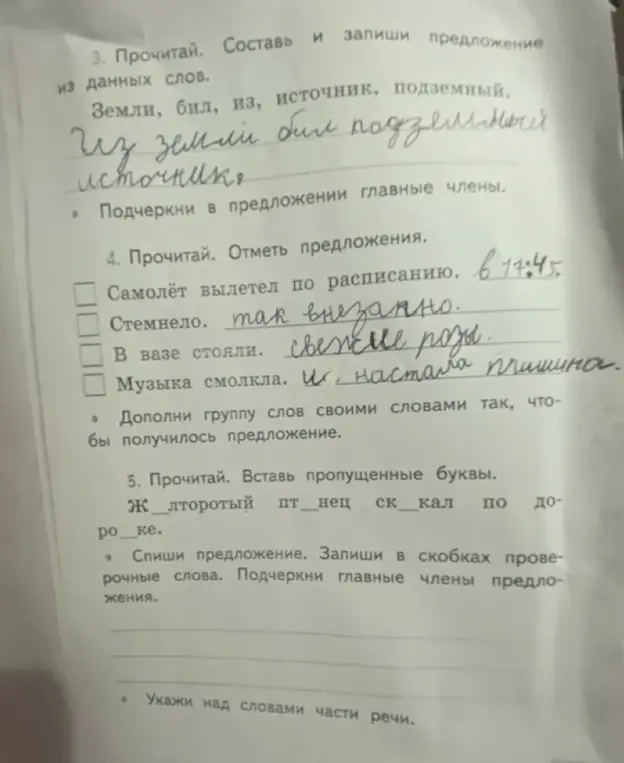 3. Прочитай. Составь и запиши предложение
из данных слов.
Земли, бил, из, источник, подземный.
Из земли бил подземный
источник.
• Подчеркни в предложении главные члены.
4. Прочитай. Отметь предложения.
Самолёт вылетел по расписанию. в 17:45.
Стемнело. так внезапно.
В вазе стояли. свежие розы.
Музыка смолкла. и настала тишина.
• Дополни группу слов своими словами так, что-
бы получилось предложение.
5. Прочитай. Вставь пропущенные буквы.
Ж__лторотый пт__нец ск__кал по до-
ро__ке.
• Спиши предложение. Запиши в скобках прове-
рочные слова. Подчеркни главные члены предло-
жения.
• Укажи над словами части речи.